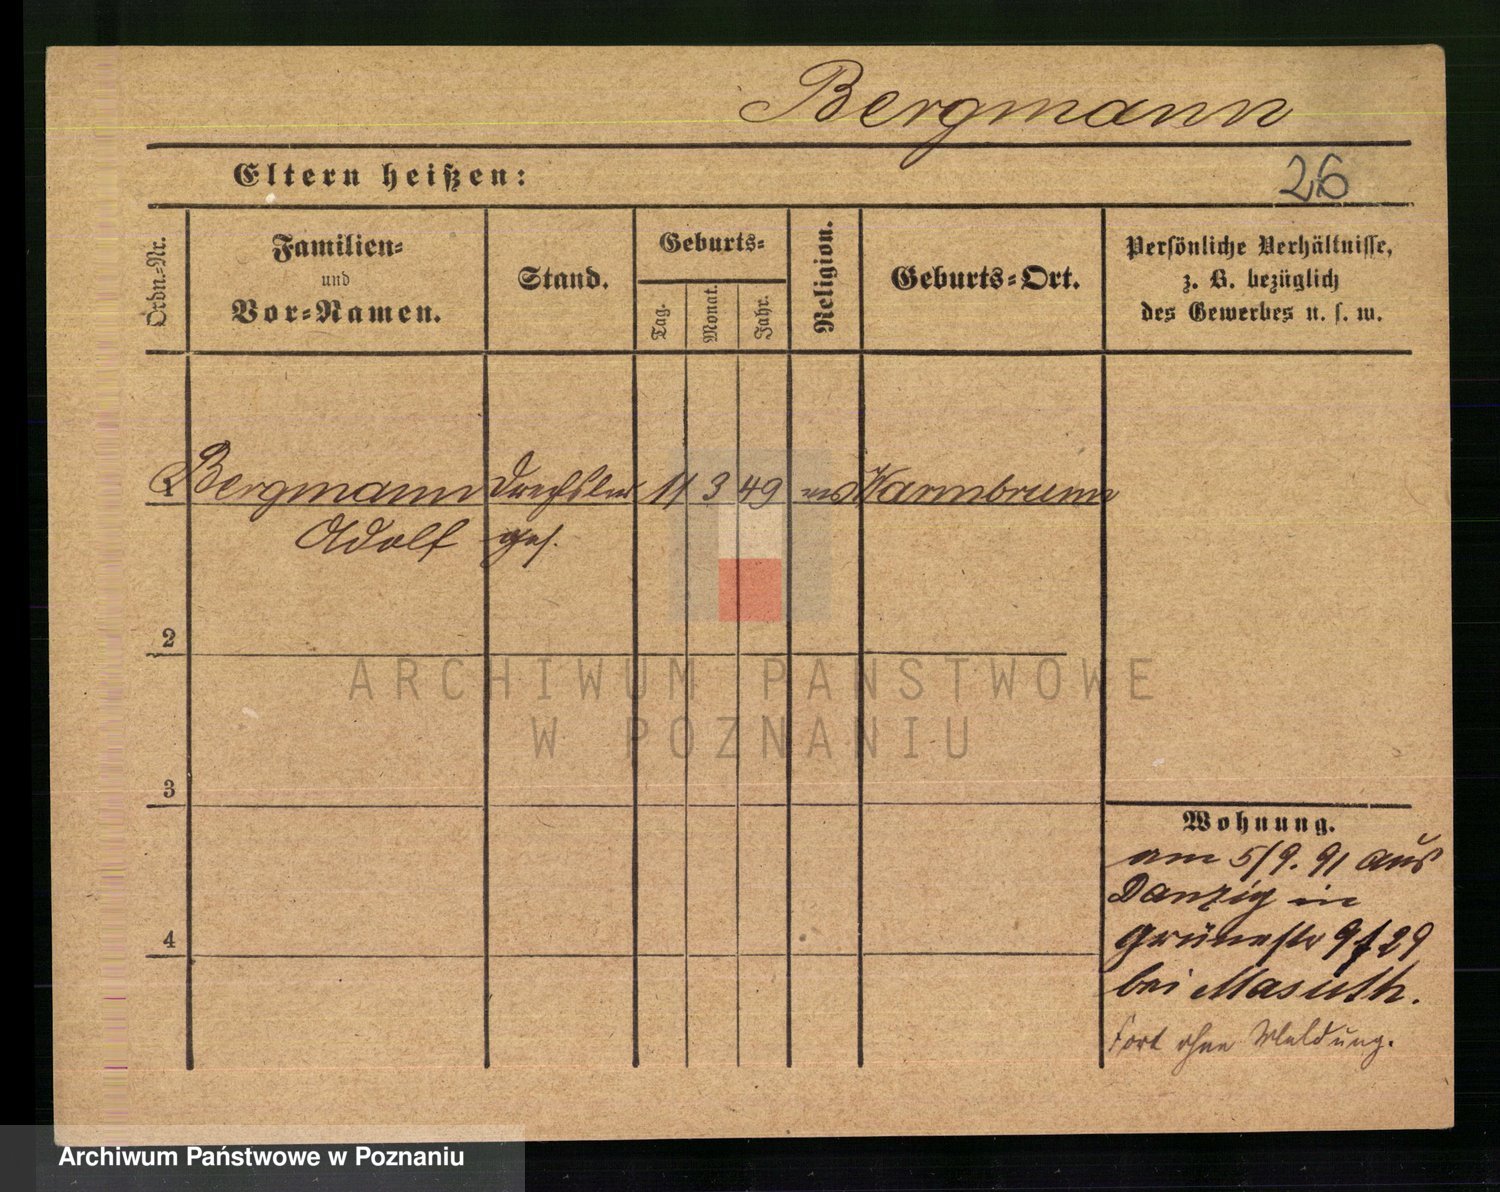 Bergmann
Eltern heißen:
26
Ordn.-Nr.
Familien-
und
Vor-Namen.
Stand.
Geburts-
Tag.
Monat.
Jahr.
Religion.
Geburts-Ort.
Persönliche Verhältnisse,
z. B. bezüglich
des Gewerbes u. s. w.
1 Bergmann Drechsler 11 3 49 Warmbrunn
Adolf ges.
2
3
4
Wohnung.
am 5/9. 91 aus
Danzig in
Grünestr 9 f 29
bei Masuth.
Fort ohne Meldung.
ARCHIWUM PAŃSTWOWE
W POZNANIU
Archiwum Państwowe w Poznaniu